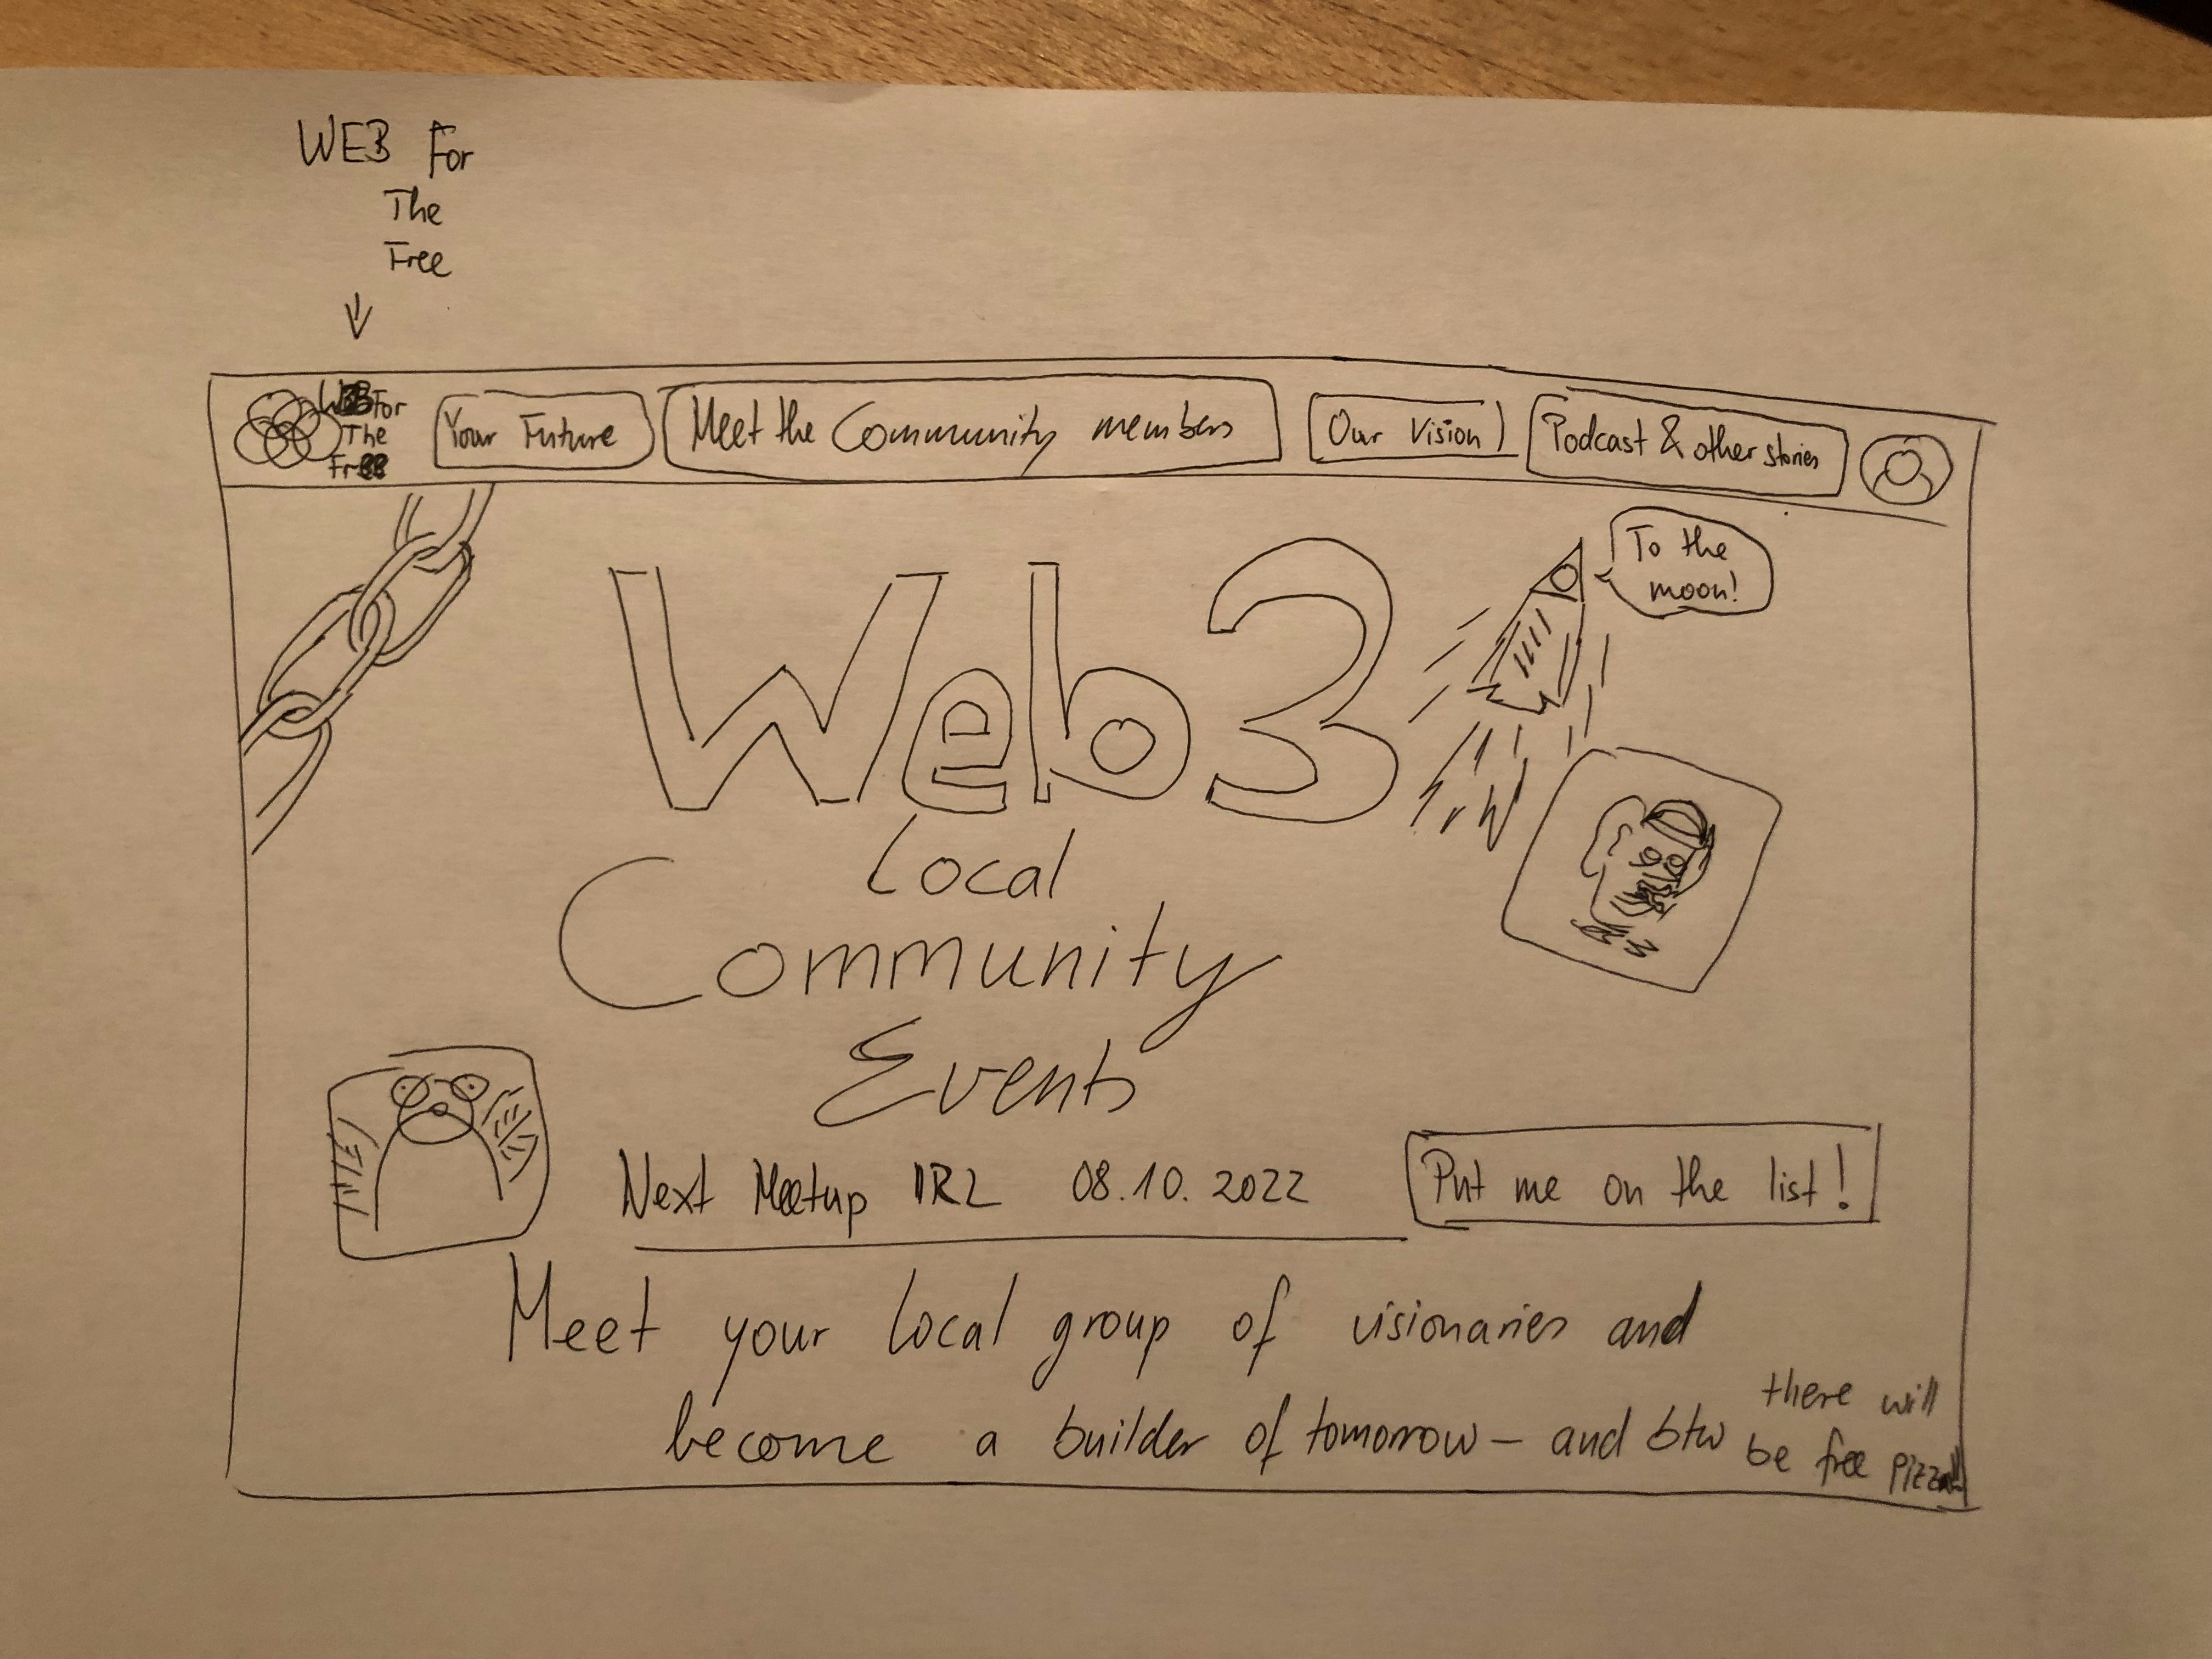 WEB For
The
Free
WEB For
The
Free
Your Future
Meet the Community members
Our Vision
Podcast & other stories
To the
moon!
Web3
Local
Community
Events
Next Meetup IRL 08.10.2022
Put me on the list!
Meet your local group of visionaries and
become a builder of tomorrow – and btw there will
be free pizza!!